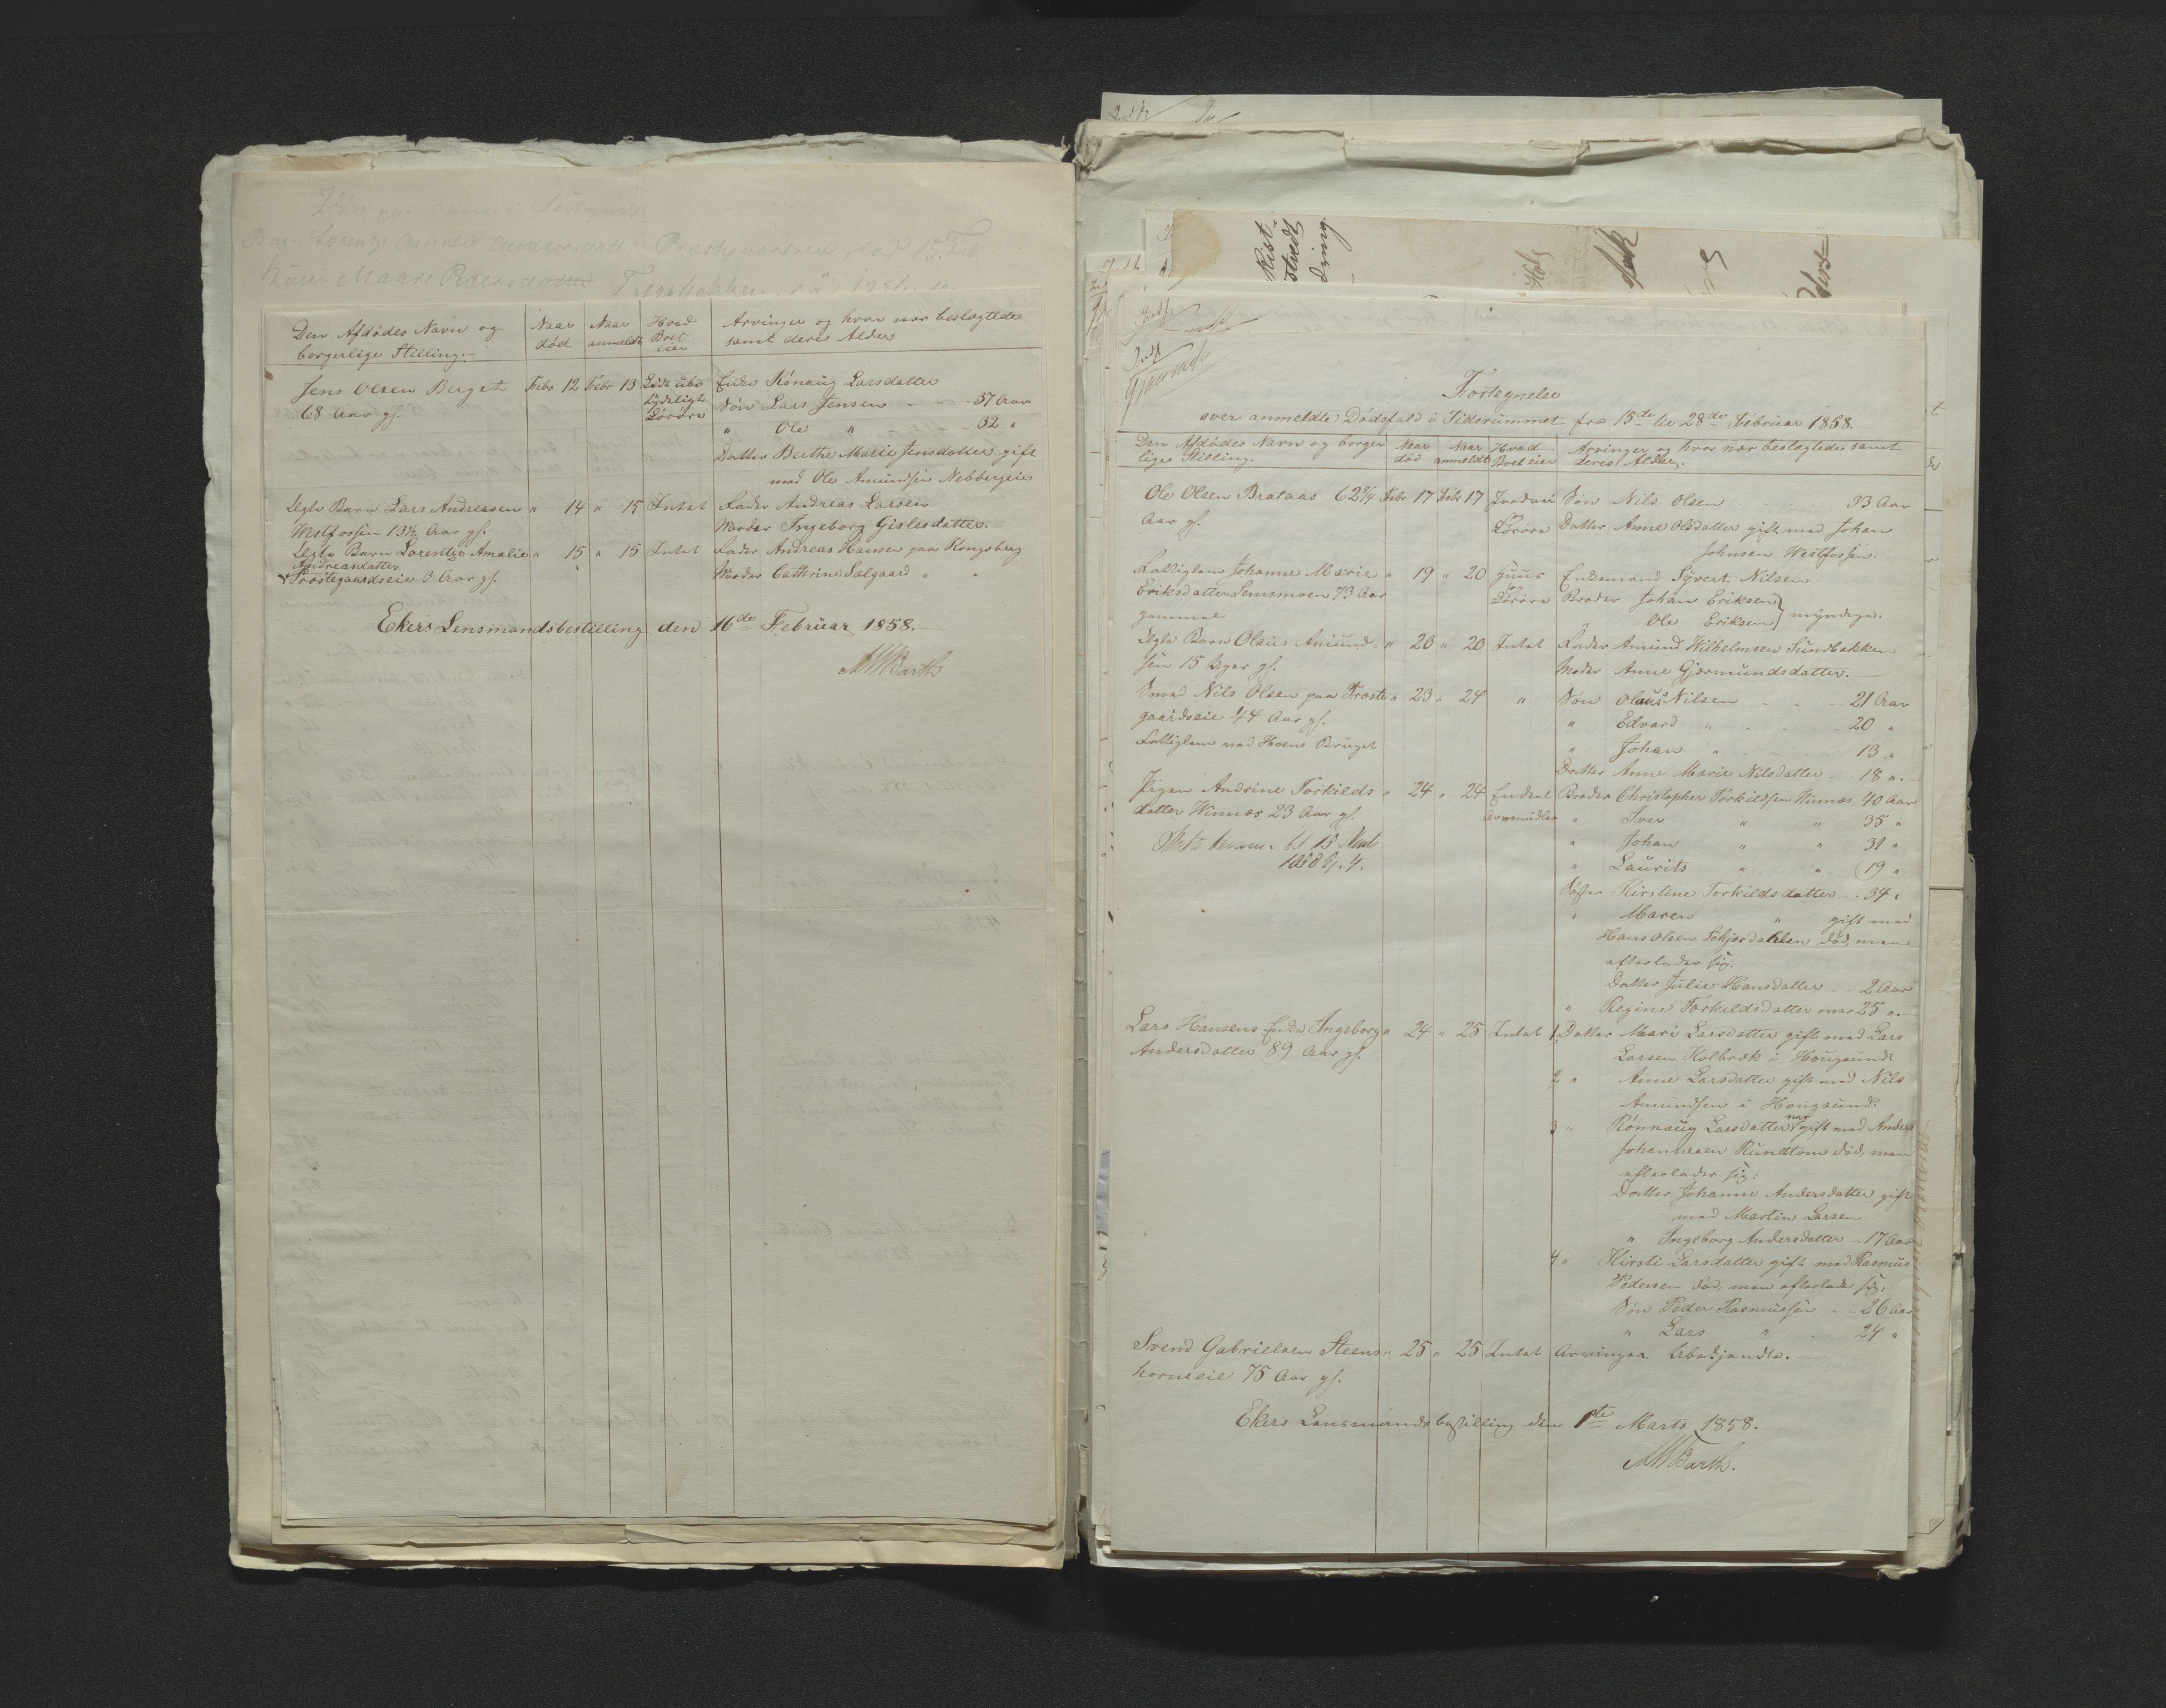 Den Afdødes Navn og borgerlige Stilling.
Naar død
Naar anmeldt
Hvad Boet eier
Arvinger og hvor nær beslægtede samt deres Alder
Jens Olsen Berget Febr 12 Febr 13 Enke Rønaug Larsdatter
68 Aar gl. Løsøre Søn Lars Jensen 37 Aar
" Ole " 32 "
Datter Berthe Marie Jensdatter gift
med Ole Amundsen Nebbergeie
Ægte Barn Lars Andreasen " 14 " 15 Intet Fader Andreas Larsen
Westfossen 13½ Aar gl. Moder Ingeborg Gislesdatter.
Ægte Barn Lorentze Amalie " 15 " 15 Intet Fader Andreas Hansen paa Kongsberg
Andreasdatter
Præstegaardseie 3 Aar gl. Moder Cathrine Salgaard " "
Ekers Lensmandsbestilling den 16de Februar 1858.
Barth
Fortegnelse
over anmeldte Dødsfald i Tidsrummet fra 15de til 28de Februar 1858.
Den Afdødes Navn og borgerlige Stilling.
Naar død
Naar anmeldt
Hvad Boet eier
Arvinger og hvor nær beslægtede samt deres Alder.
Ole Olsen Brataas 62¾ Febr 17 Febr 17 Jord Søn Nils Olsen 33 Aar
Aar gl. Løsøre Datter Anne Olsdatter gift med Johan
Johnsen Westfossen.
Fattiglem Johanne Marie " 19 " 20 Huus Enkemand Syvert Nilsen
Eriksdatter Semsmoen 73 Aar Løsøre Broder Johan Eriksen
gammel " Ole Eriksen } myndige.
Ægte Barn Olaus Amund- " 20 " 20 Intet Fader Amund Wilhelmsen Sundbakken
sen 15 Uger gl. Moder Anne Gjermundsdatter.
Smed Nils Olsen paa Præste " 23 " 24 " Søn Olaus Nilsen 21 Aar
gaardseie 44 Aar gl. " Edvard " 20 "
Fattiglem ved Hoens Bruget " Johan " 13 "
Datter Anne Marie Nilsdatter 18 "
Pigen Andrine Torkilds " 24 " 24 Endeel Broder Christopher Torkildsen Wennes 40 Aar
datter Wennes 23 Aar gl. Arvemidler " Iver " " 35 "
1858
" Johan " " 31 "
" Laurits " " 19 "
Søster Kirstine Torkildsdatter 34 "
" Maren " gift med
Hans Olsen Schjerdalen død, men
efterlader sig.
Datter Julie Hansdatter 2 Aar
" Regine Torkildsdatter over 25 "
Lars Hansens Enke Ingeborg " 24 " 25 Intet 1, Datter Mari Larsdatter gift med Lars
Andersdatter 89 Aar gl. Larsen Holbræk i Hougsund.
2 " Anne Larsdatter gift med Nils
Amundsen i Hougsund.
3 " Rønnaug Larsdatter var gift med Anders
Johannesen Rundtom død, men
efterlader sig:
Datter Johanne Andersdatter gift
med Martin Larsen
" Ingeborg Andersdatter 17 Aar
4 " Kirsti Larsdatter gift med Rasmus
Pedersen død, men efterlader sig,
Søn Peder Rasmussen 26 Aar
" Lars " 24 "
Svend Gabrielsen Steens " 25 " 25 Intet Arvinger, Ubekjendte.
horneeie 75 Aar gl.
Ekers Lensmandsbestilling den 1ste Marts 1858.
Barth.